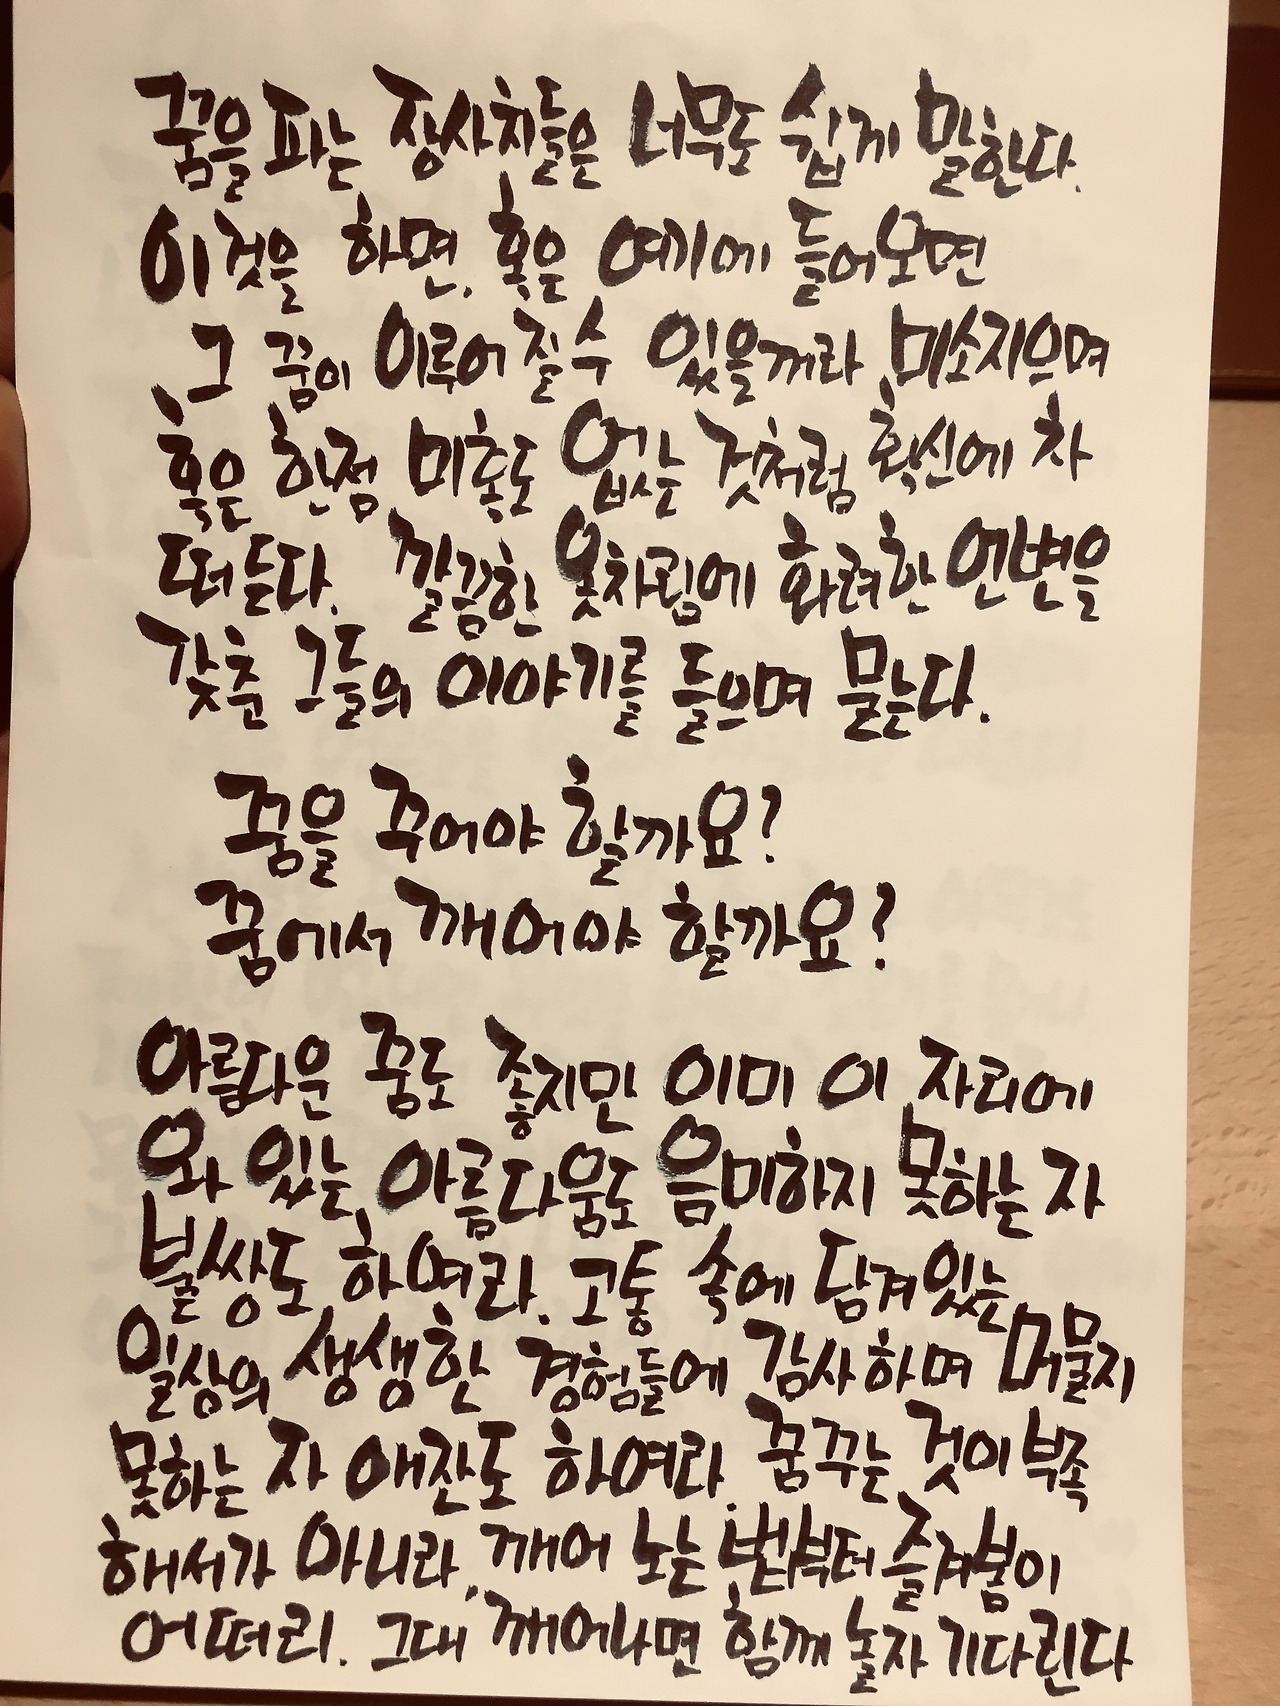 꿈을 파는 장사치들은 너무도 쉽게 말한다.
이것을 하면, 혹은 여기에 들어오면
그 꿈이 이루어질수 있을꺼라 미소지으며
혹은 한점 미혹도 없는 것처럼 확신에 차
떠든다. 깔끔한 옷차림에 화려한 언변을
갖춘 그들의 이야기를 들으며 묻는다.
꿈을 꾸어야 할까요?
꿈에서 깨어야 할까요?
아름다운 꿈도 좋지만 이미 이 자리에
와 있는 아름다움도 음미하지 못하는 자
불쌍도 하여라. 고통 속에 담겨있는
일상의 생생한 경험들에 감사하며 머물지
못하는 자 애잔도 하여라. 꿈꾸는 것이 부족
해서가 아니라, 깨어 노는 법부터 즐겨봄이
어떠리. 그대 깨어나면 함께 놀자 기다린다